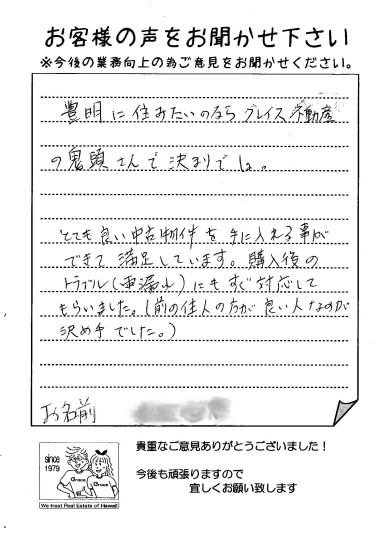 お客様の声をお聞かせ下さい
※今後の業務向上の為ご意見をお聞かせください。
豊明に住みたいのならグレイス不動産
の鬼頭さんで決まりでしょ。
とても良い中古物件を手に入れる事が
できて満足しています。購入後の
トラブル(雨漏れ)にもすぐ対応して
もらいました。(前の住人の方が良い人なのが
決め手でした。)
お名前
貴重なご意見ありがとうございました!
今後も頑張りますので
宜しくお願い致します
since
1979
Grace
Grace
We treat Real Estate of Hawaii